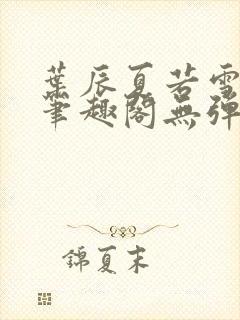 葉辰夏若雪
筆趣閣無彈
錦夏末